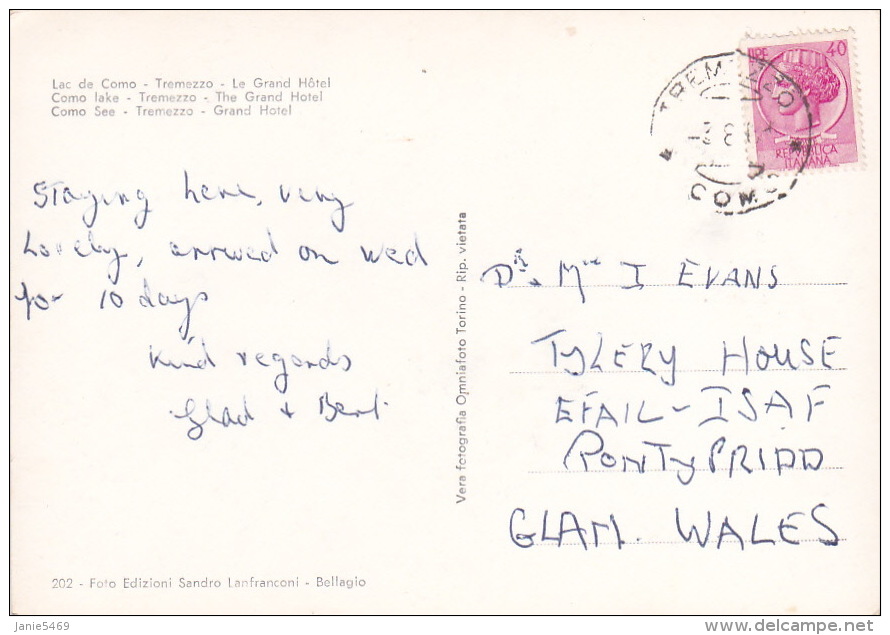 Lac de Como - Tremezzo - Le Grand Hôtel
Como lake - Tremezzo - The Grand Hotel
Como See - Tremezzo - Grand Hotel
LIRE 40
REPUBBLICA
ITALIANA
TREMEZZO
COMO
Staying here, very
Lovely, arrived on Wed
for 10 days
Kind regards
Glad + Bert
Vera fotografia Omniafoto Torino - Rip. vietata
Dr + Mrs I EVANS
TYLERY HOUSE
EFAIL-ISAF
PONTYPRIDD
GLAM. WALES
202 - Foto Edizioni Sandro Lanfranconi - Bellagio
Janie5469
delcampe.net